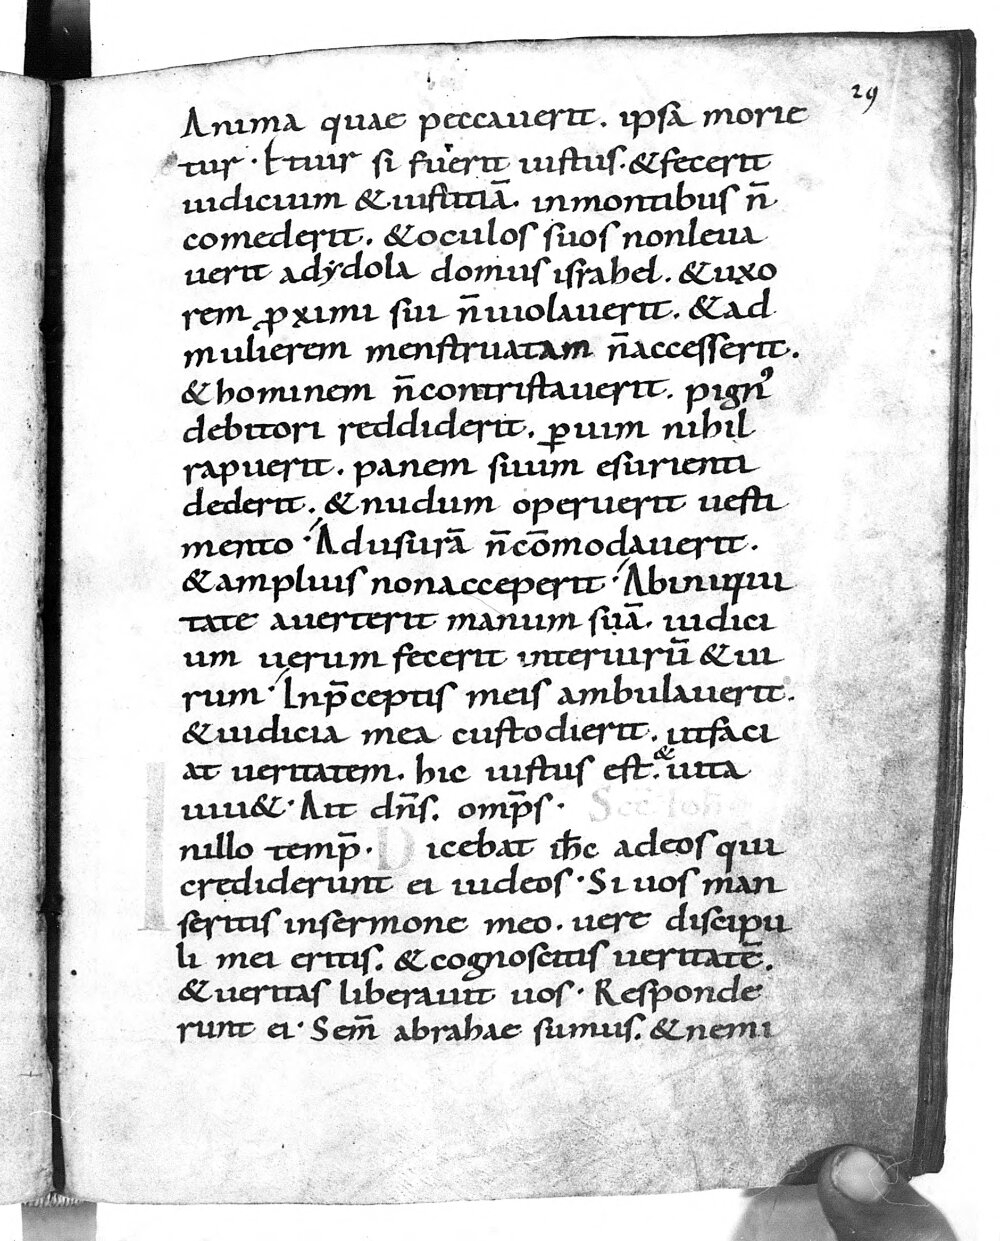 29
Anima quae peccauerit. ipsa morie
tur. Et uir si fuerit iustus. &fecerit
iudicium &iustitiā. inmontibus n̄
comederit. &oculos suos nonleua
uerit adydola domus israhel. &uxo
rem ꝓximi sui n̄uiolauerit. &ad
mulierem menstruatam n̄accesserit.
&hominem n̄contristauerit. pign'
debitori reddiderit. ꝑuim nihil
rapuerit. panem suum esurienti
dederit. &nudum operuerit uesti
mento. Adusurā n̄cōmodauerit.
&amplius nonacceperit. Abiniqui
tate auerterit manum suā. iudici
um uerum fecerit interuirū &ui
rum. Inp̄ceptis meis ambulauerit.
&iudicia mea custodierit. utfaci
at ueritatem. hic iustus est. &uita
uiu&. Ait dn̄s. omp̄s.
Sec̄ Ioh̄
nillo temp̄. Dicebat ih̄c adeos qui
crediderunt ei iudeos. Si uos man
seritis insermone meo. uere discipu
li mei eritis. &cognoscitis ueritatē.
&ueritas liberauit uos. Responde
runt ei. Sem̄ abrahae sumus. &nemi